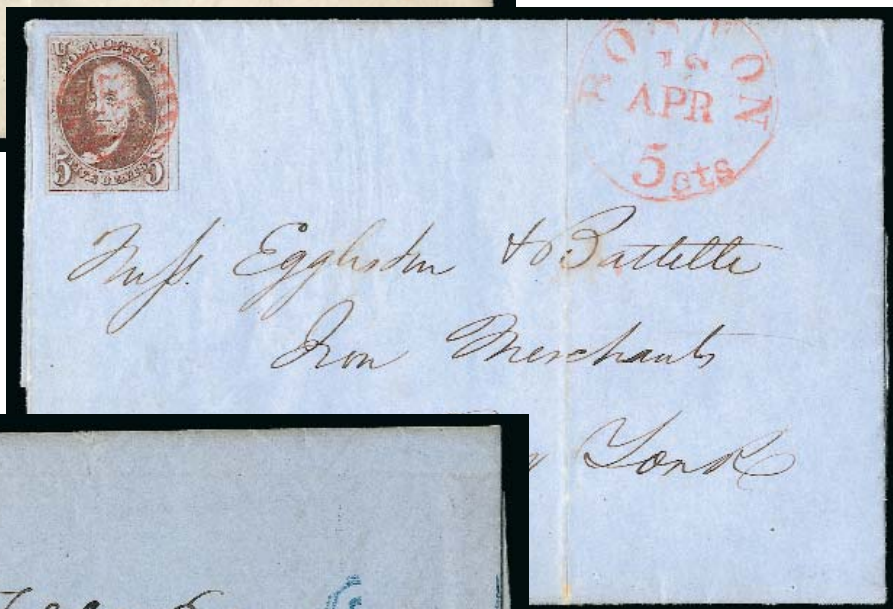 POST OFFICE
5 5
BOSTON
APR
5 cts
Mess. Eggleston & Battelle
Iron Merchants
York